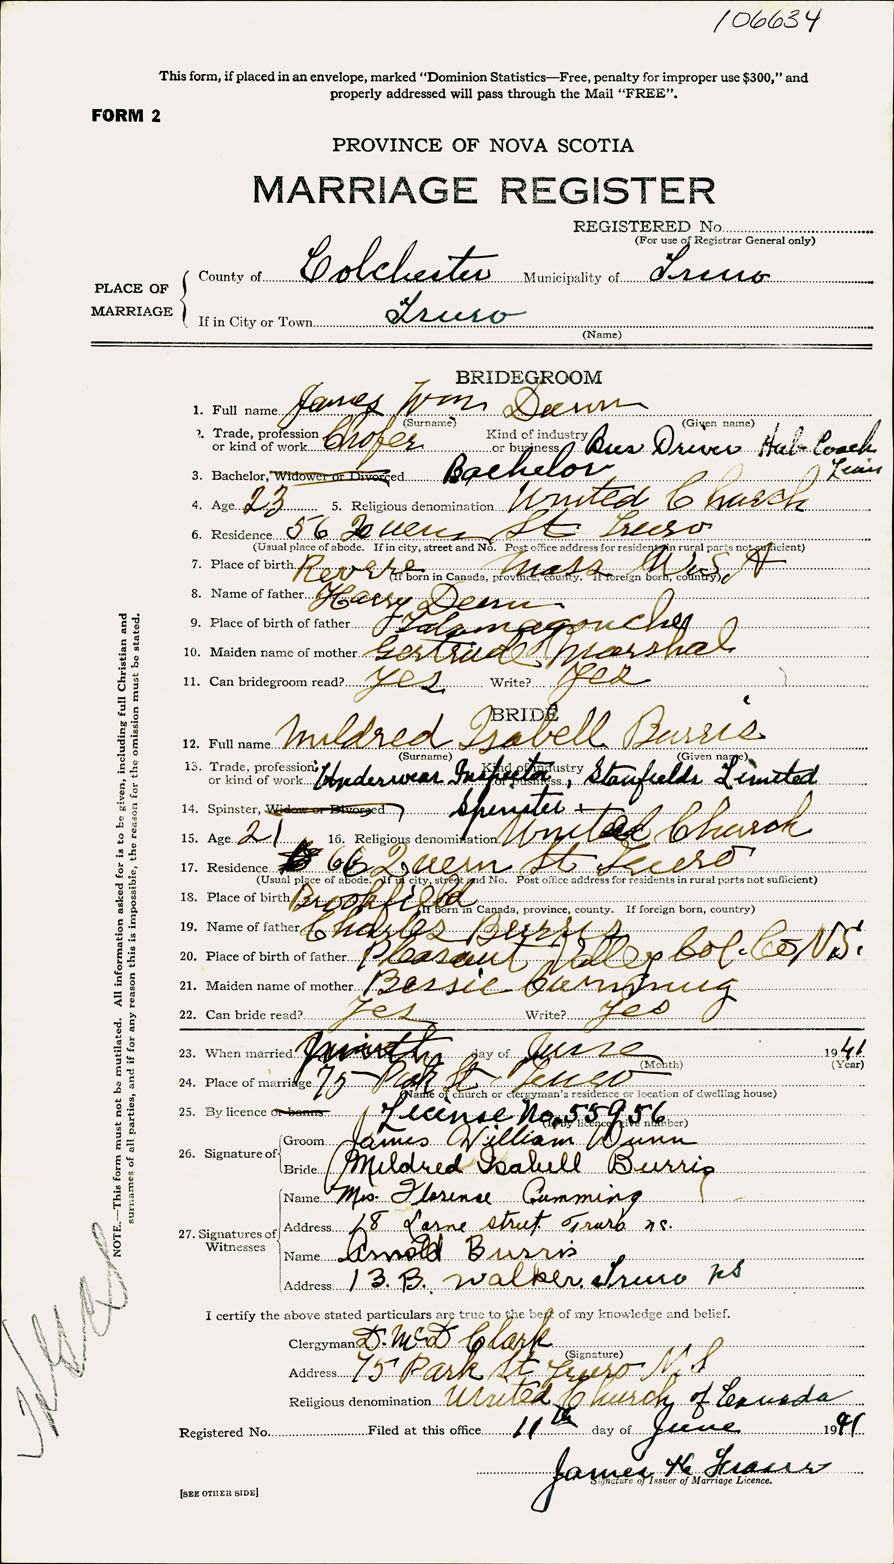 106634
This form, if placed in an envelope, marked "Dominion Statistics—Free, penalty for improper use $300," and
properly addressed will pass through the Mail "FREE".
FORM 2
PROVINCE OF NOVA SCOTIA
MARRIAGE REGISTER
REGISTERED No.
(For use of Registrar General only)
PLACE OF MARRIAGE
County of Colchester Municipality of Truro
If in City or Town Truro
(Name)
BRIDEGROOM
1. Full name James Wm Dunn
(Surname) (Given name)
2. Trade, profession or kind of work Chofer Kind of industry or business Bus Driver Hub Coach
3. Bachelor, Widower or Divorced Bachelor
4. Age 23 5. Religious denomination United Church
6. Residence 56 Queen St Truro
(Usual place of abode. If in city, street and No. Post office address for residents in rural parts not sufficient)
7. Place of birth Revere Mass U.S.A
(If born in Canada, province, county. If foreign born, country)
8. Name of father Harry Dunn
9. Place of birth of father Tatamagouche
10. Maiden name of mother Gertrude Marshal
11. Can bridegroom read? Yes Write? Yes
BRIDE
12. Full name Mildred Isabell Burris
(Surname) (Given name)
13. Trade, profession or kind of work Underwear Inspector, Kind of industry or business Stanfields Limited
14. Spinster, Widow or Divorced Spinster
15. Age 21 16. Religious denomination United Church
17. Residence 66 Queen St Truro
(Usual place of abode. If in city, street and No. Post office address for residents in rural parts not sufficient)
18. Place of birth Brookfield
(If born in Canada, province, county. If foreign born, country)
19. Name of father Charles Burris
20. Place of birth of father Pleasant Valley Col. Co N.S.
21. Maiden name of mother Bessie Cumming
22. Can bride read? Yes Write? Yes
23. When married Ninth day of June 1941
(Month) (Year)
24. Place of marriage 75 Park St Truro
(Name of church or clergyman's residence or location of dwelling house)
25. By licence or banns License No. 55956
(If by licence give number)
26. Signature of
Groom James William Dunn
Bride Mildred Isabell Burris
27. Signatures of Witnesses
Name Mrs. Florense Cumming
Address 18 Lorne street Truro N.S.
Name Arnold Burris
Address 13. B. Walker. Truro NS
I certify the above stated particulars are true to the best of my knowledge and belief.
Clergyman D. McD Clark
(Signature)
Address 75 Park St Truro N S
Religious denomination United Church of Canada
Registered No. Filed at this office 11th day of June 1941
James H Fraser
Signature of Issuer of Marriage Licence.
[SEE OTHER SIDE]
NOTE.—This form must not be mutilated. All information asked for is to be given, including full Christian and
surnames of all parties, and if for any reason this is impossible, the reason for the omission must be stated.